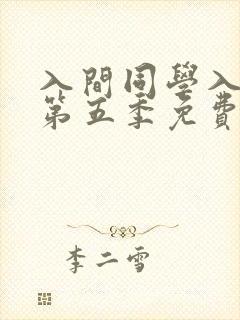 入間同學入
第五季免費
李二雪